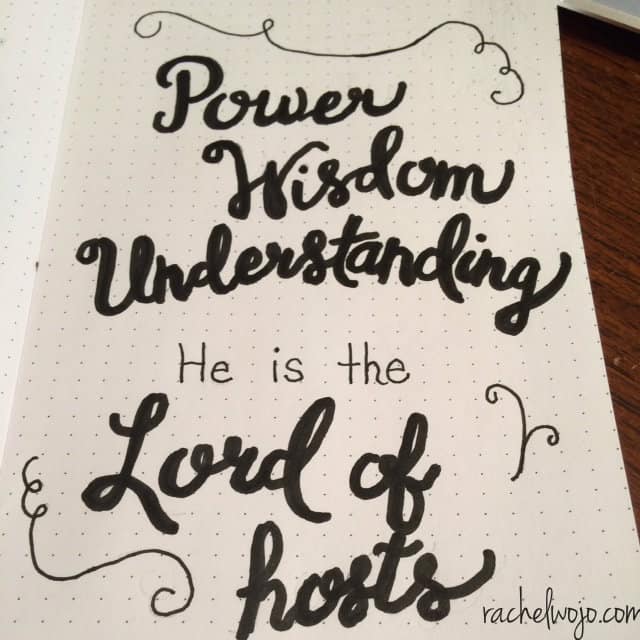 Power
Wisdom
Understanding
He is the
Lord of
hosts
rachelwojo.com